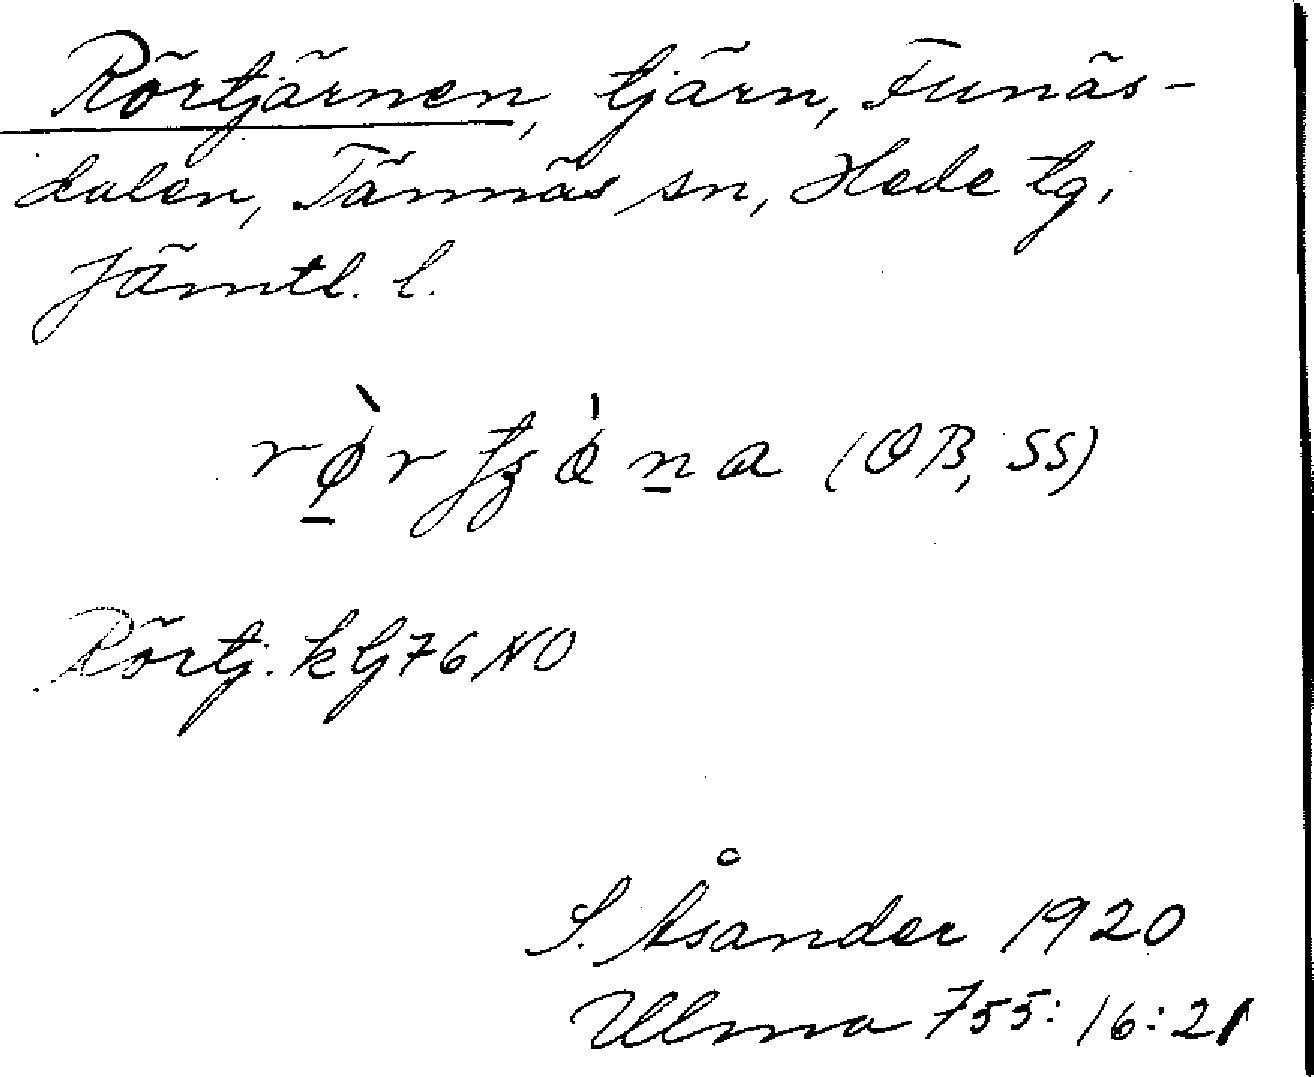 Rörtjärnen, tjärn, Funäs-
dalen, Tännäs sn, Hede tg,
Jämtl. l.
(OB, SS)
Rörtj. k bj 76 NO
S. Åsander 1920
Ulma 755:16:21